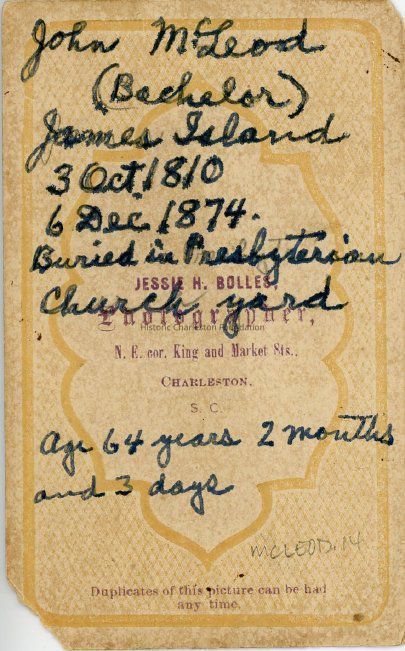 John McLeod
(Bachelor)
James Island
3 Oct. 1810
6 Dec. 1874.
Buried in Presbyterian
JESSIE H. BOLLES,
Church yard
Photographer,
Historic Charleston Foundation
N. E. cor. King and Market Sts.,
CHARLESTON,
S. C.
Age 64 years 2 months
and 3 days
MCLEOD.14
Duplicates of this picture can be had
any time.